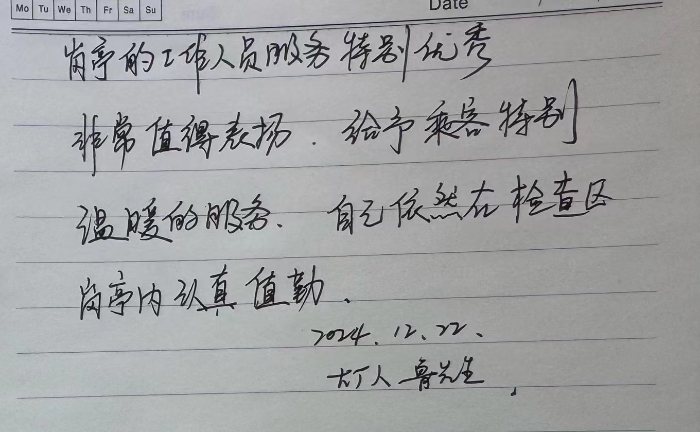 Mo Tu We Th Fr Sa Su
Date
岗亭的工作人员服务特别优秀
非常值得表扬.给予乘客特别
温暖的服务、自己依然在检查区
岗亭内认真值勤、
2024.12.22、
鲁先生